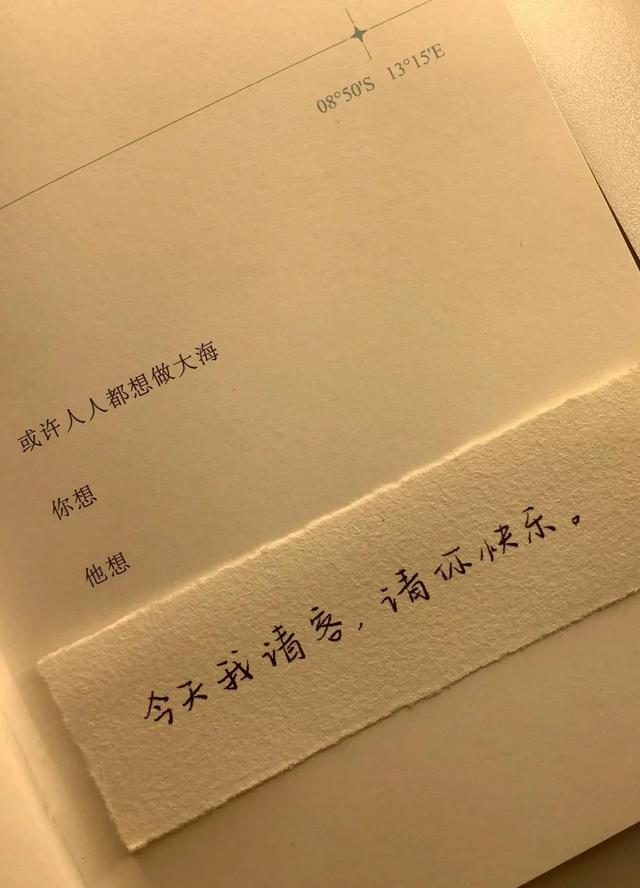 08°50'S 13°15'E
或许人人都想做大海
你想
他想
今天我请客，请你快乐。